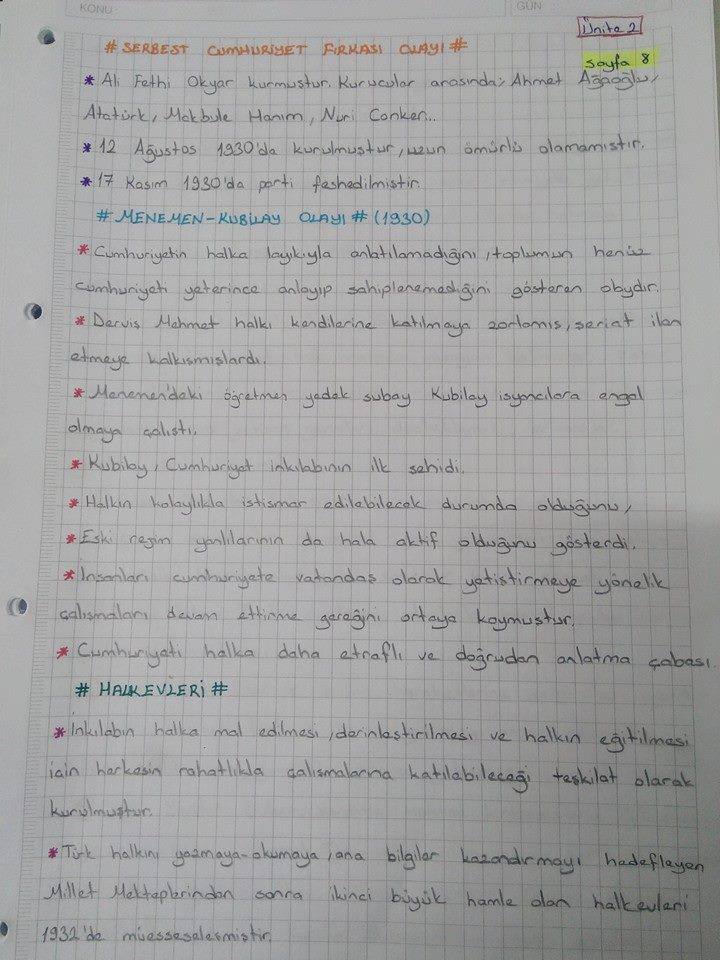 KONU:
GÜN
Ünite 2
# SERBEST CUMHURİYET FIRKASI OLAYI #
Sayfa 8
* Ali Fethi Okyar kurmuştur. Kurucular arasında; Ahmet Ağaoğlu,
Atatürk, Makbule Hanım, Nuri Conker..
* 12 Ağustos 1930'da kurulmuştur, uzun ömürlü olamamıştır.
* 17 Kasım 1930'da parti feshedilmiştir.
# MENEMEN-KUBİLAY OLAYI # (1930)
* Cumhuriyetin halka layıkıyla anlatılamadığını, toplumun henüz
cumhuriyeti yeterince anlayıp sahiplenemediğini gösteren olaydır.
* Derviş Mehmet halkı kendilerine katılmaya zorlamış, şeriat ilan
etmeye kalkışmışlardı.
* Menemen'deki öğretmen yedek subay Kubilay isyancılara engel
olmaya çalıştı.
* Kubilay, Cumhuriyet inkılabının ilk şehidi.
* Halkın kolaylıkla istismar edilebilecek durumda olduğunu,
* Eski rejim yanlılarının da hala aktif olduğunu gösterdi.
* İnsanları cumhuriyete vatandaş olarak yetiştirmeye yönelik
çalışmaları devam ettirme gereğini ortaya koymuştur.
* Cumhuriyeti halka daha etraflı ve doğrudan anlatma çabası.
# HALKEVLERİ #
* İnkılabın halka mal edilmesi, derinleştirilmesi ve halkın eğitilmesi
için herkesin rahatlıkla çalışmalarına katılabileceği teşkilat olarak
kurulmuştur.
* Türk halkını yazmaya-okumaya, ana bilgiler kazandırmayı hedefleyen
Millet Mekteplerinden sonra ikinci büyük hamle olan halkevleri
1932'de müesseseleşmiştir.